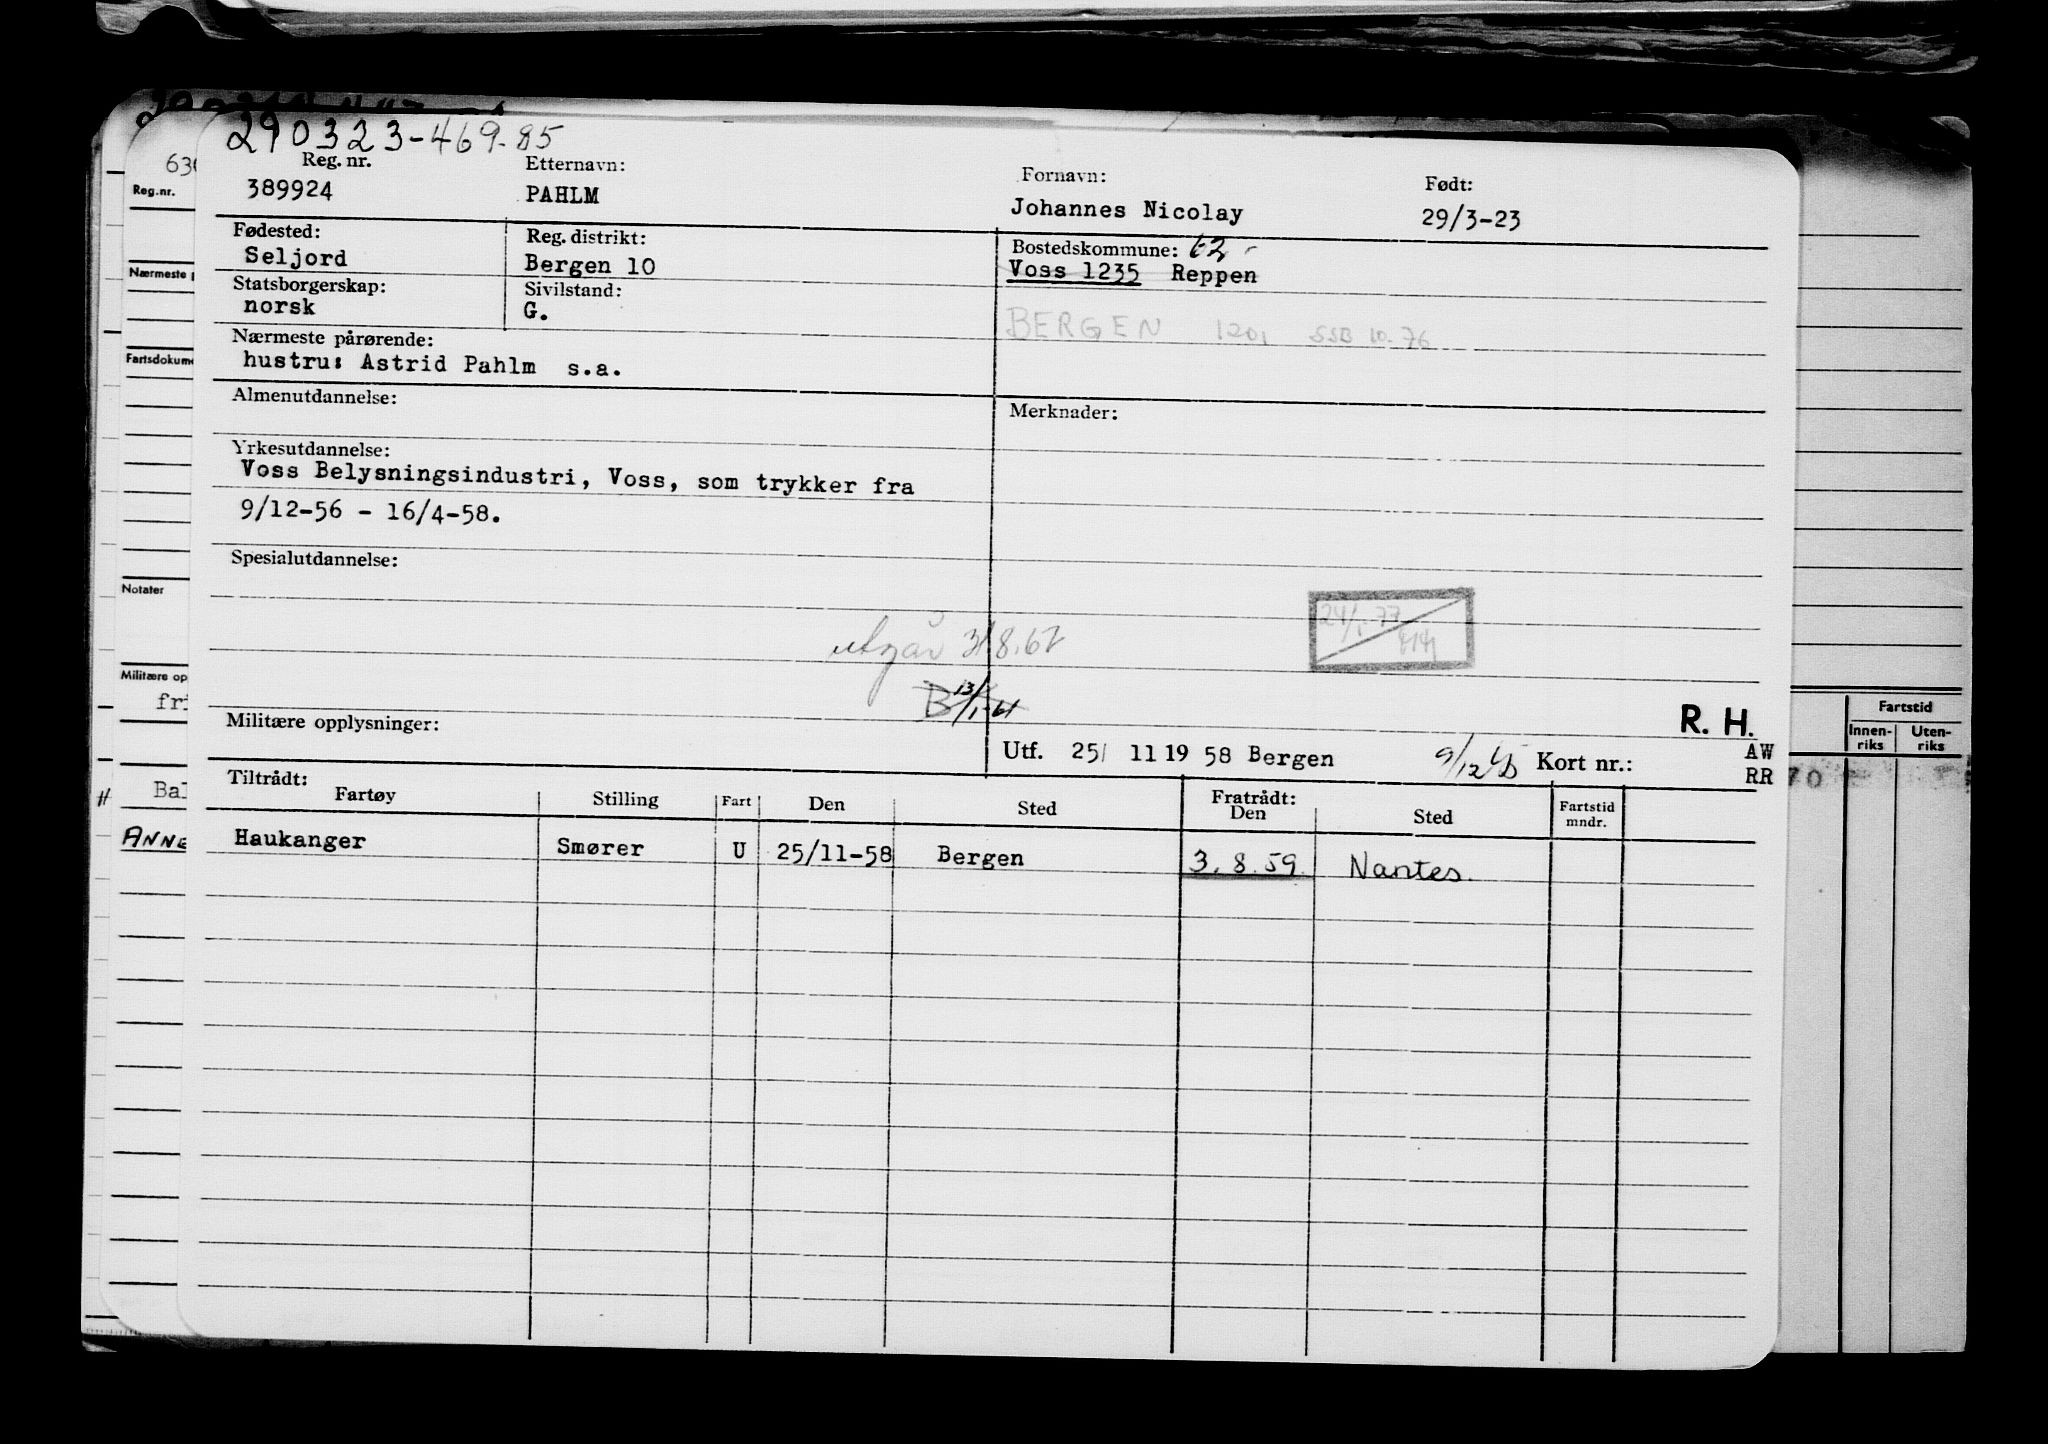 290323-469.85
Reg. nr. Etternavn: Fornavn: Født:
389924 PAHLM Johannes Nicolay 29/3-23
Fødested: Reg. distrikt: Bostedskommune: 62-
Seljord Bergen 10 Voss 1235 Reppen
Statsborgerskap: Sivilstand:
norsk G.
BERGEN 1201 SSB 10-76
Nærmeste pårørende:
hustru: Astrid Pahlm s.a.
Almenutdannelse: Merknader:
Yrkesutdannelse:
Voss Belysningsindustri, Voss, som trykker fra
9/12-56 - 16/4-58.
Spesialutdannelse:
24/1 77
utgår 31/8.62
B 13/1-61
R. H.
Militære opplysninger:
Utf. 25/ 11 19 58 Bergen 9/12 Kort nr.: AW
RR
Tiltrådt: Fratrådt:
Fartøy Stilling Fart Den Sted Den Sted Fartstid mndr.
Haukanger Smører U 25/11-58 Bergen 3.8.59. Nantes.
Reg.nr.
Nærmeste
Notater
Militære op
Fartstid
Innen-riks Uten-riks
70
ANNE